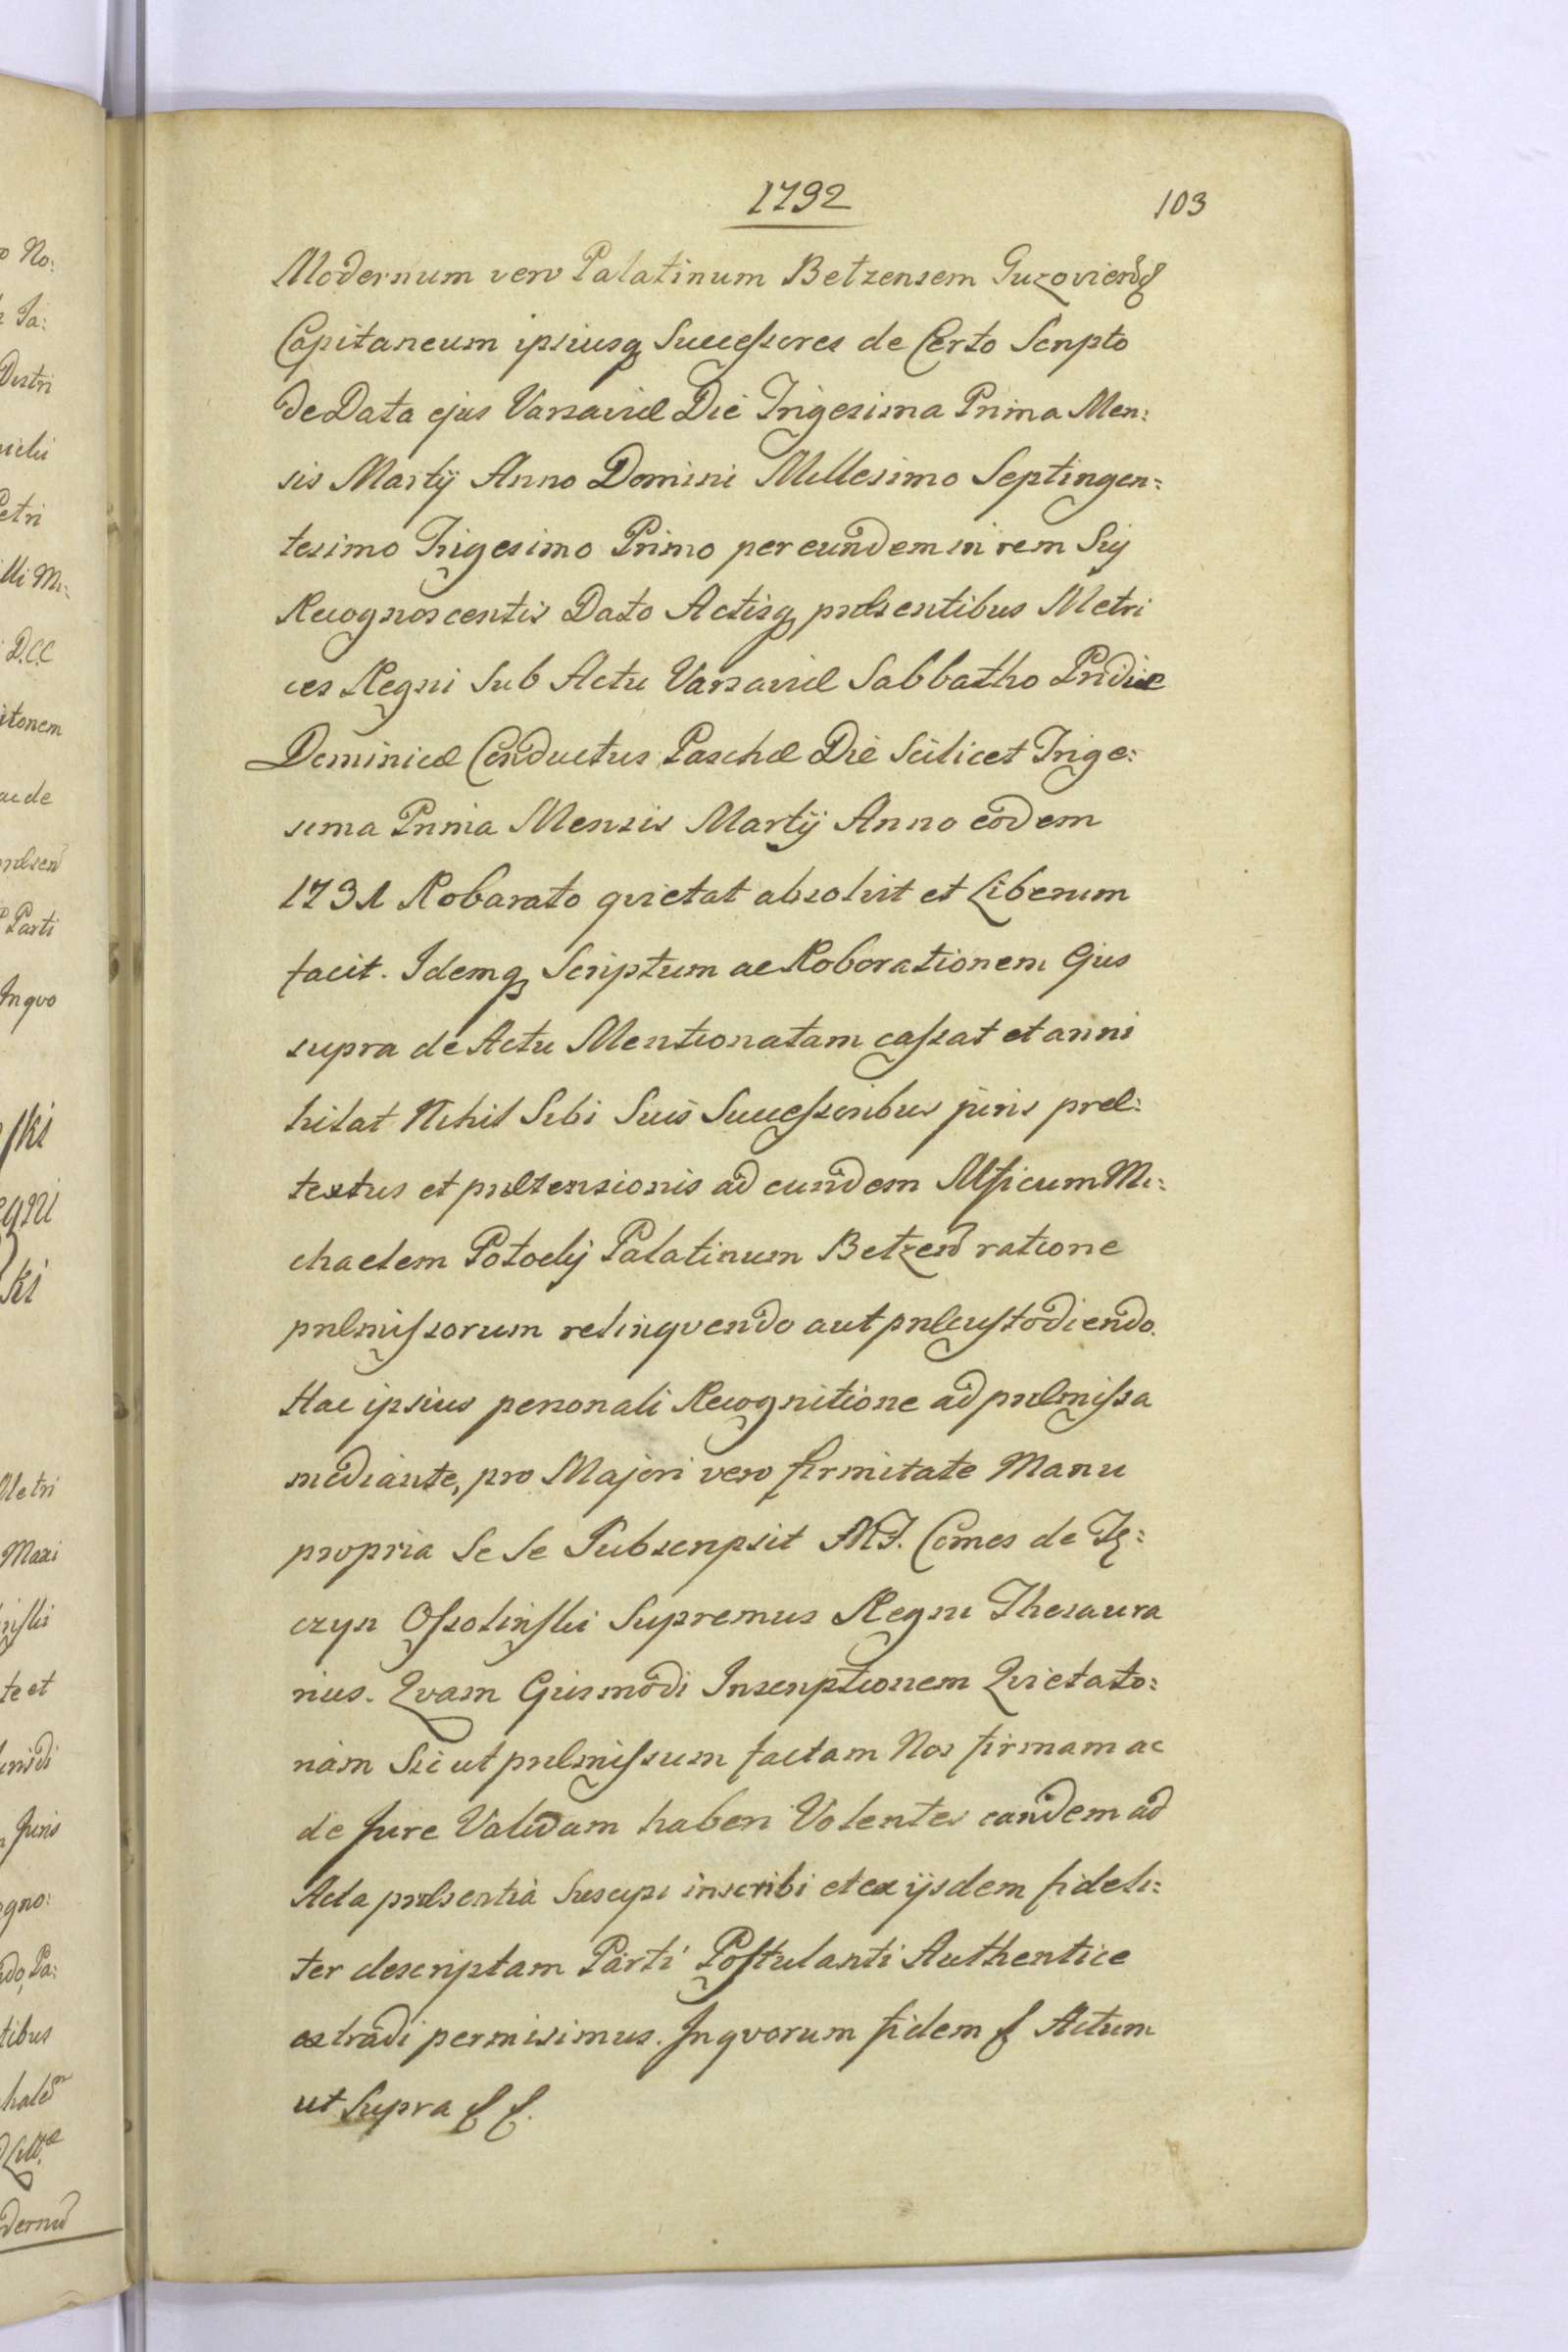 1732
103
Modernum vero Palatinum Betzensem Guzovienß
Capitaneum ipsiusq Successores de Certo Scripto
de Data ejus Varsaviæ Die Trigesima Prima Men:
sis Martij Anno Domini Millesimo Septingen:
tesimo Trigesimo Primo per eundem in rem Sui
Recognoscentis Dato Actisq præsentibus Metri
ces Regni Sub Actu Varsaviæ Sabbatho Pridie
Dominicæ Conductus Paschæ Die Scilicet Trige:
sima Prima Mensis Martij Anno eodem
1731 Robarato qvietat absolvit et Liberum
facit. Idemq Scriptum ac Roborationem Ejus
supra de Actu Mentionatam cassat et anni
hilat Nihil Sibi Suis Successoribus juris præ:
textus et prætensionis ad eundem Mficum Mi:
chaelem Potocky Palatinum Betzen ratione
præmissorum relinqvendo aut præcustodiendo.
Hac ipsius personali Recognitione ad præmissa
mediante, pro Majori vero firmitate Manu
propria Se Se Subscripsit MF. Comes de Tę:
czyn Ossolinski Supremus Regni Thesaura
rius. Qvam Ejusmodi Inscriptionem Qvietato:
riam Sic ut præmissum factam Nos firmam ac
de Jure Validam haberi Volentes eandem ad
Acta præsentia Suscipi inscribi et ex ijsdem fideli:
ter descriptam Parti Postulanti Authentice
extradi permisimus. Inqvorum fidem f Actum
ut Supra f f.
o No:
Ja:
Dextri
Petri
illi Mi:
D.C.C
itonem
ac de
Parti
Inqvo
ski
egni
ski
Metri
Maxi
inski
te et
Juris
ogno:
do, Pa:
tibus